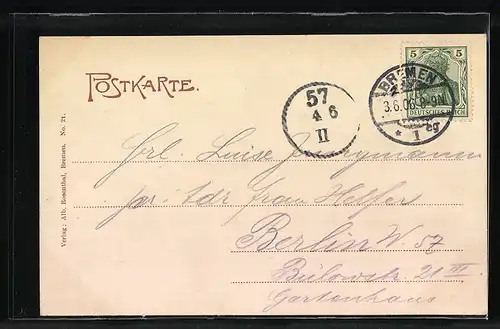 POSTKARTE.
5 5
DEUTSCHES REICH
BREMEN
3.6.06. 8-9N.
* 1 eg
57
4 6
II
Frl. Luise Jungmann
per. Adr Frau Helfer
Berlin W. 57
Bülowstr. 21 III.
Gartenhaus
Verlag: Alb. Rosenthal, Bremen. No. 21.